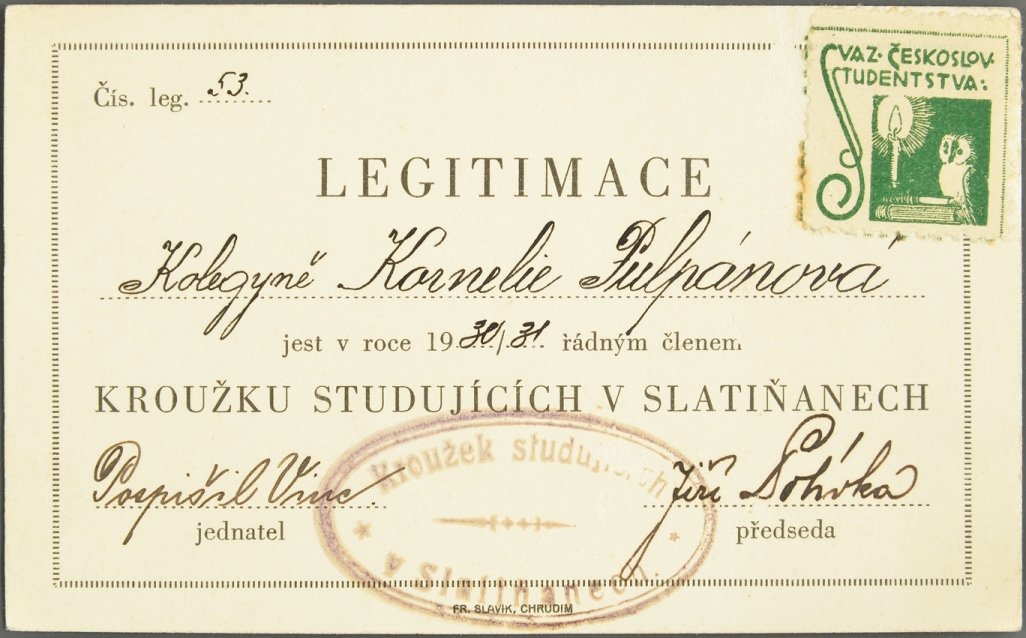 Čís. leg. 53.
SVAZ· ČESKOSLOV·
STUDENTSTVA:
LEGITIMACE
Kolegyně Kornelie Pulpánová
jest v roce 1930/31 řádným členem
KROUŽKU STUDUJÍCÍCH V SLATIŇANECH
Kroužek studujících
v Slatiňanech.
Pospíšil Vinc. Jiří
jednatel předseda
FR. SLAVÍK, CHRUDIM